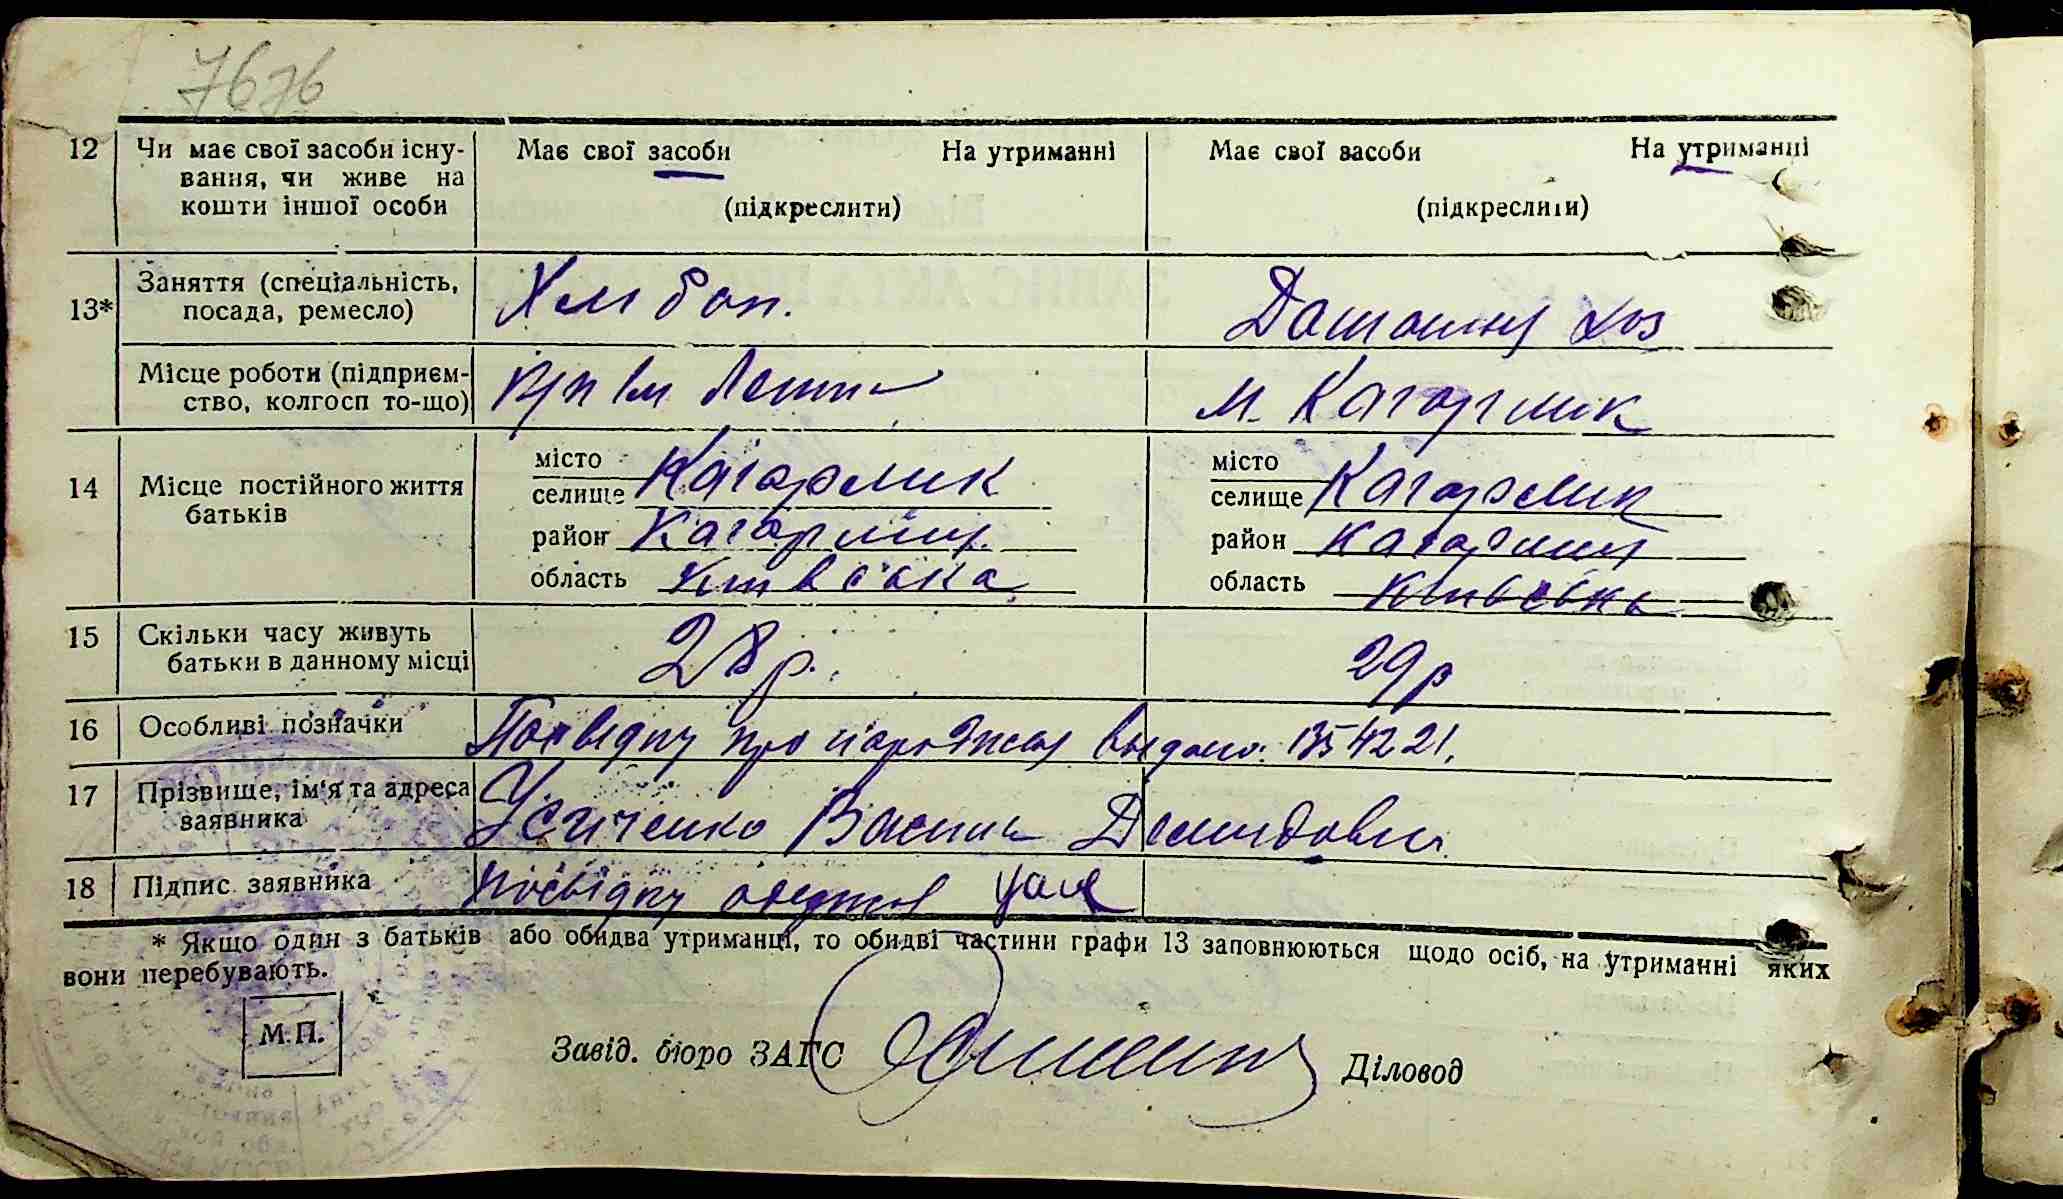 7676
12 Чи має свої засоби існу-
вання, чи живе на
кошти іншої особи
Має свої засоби На утриманні
(підкреслити)
Має свої засоби На утриманні
(підкреслити)
13* Заняття (спеціальність,
посада, ремесло)
Хлібоп.
Домашня хоз
Місце роботи (підприєм-
ство, колгосп то-що)
ім
м. Кагарлик
14 Місце постійного життя
батьків
місто
селище Кагарлик
район Кагарлиц.
область Київська
місто
селище Кагарлик
район Кагарлиц
область Київська
15 Скільки часу живуть
батьки в данному місці
28 р.
29 р
16 Особливі позначки
Посвідку про народжен видано. 1354221.
17 Прізвище, ім'я та адреса
заявника
Усиченко Василь Демидович
18 Підпис заявника
Посвідку одержав
* Якщо один з батьків або обидва утриманці, то обидві частини графи 13 заповнюються щодо осіб, на утриманні яких
вони перебувають.
М.П.
Завід. бюро ЗАГС
Діловод